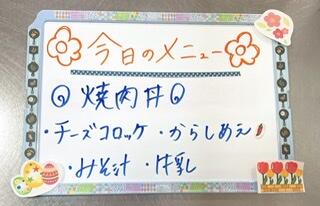 今日のメニュー
焼肉丼
・チーズコロッケ・からしあえ
・みそ汁・牛乳